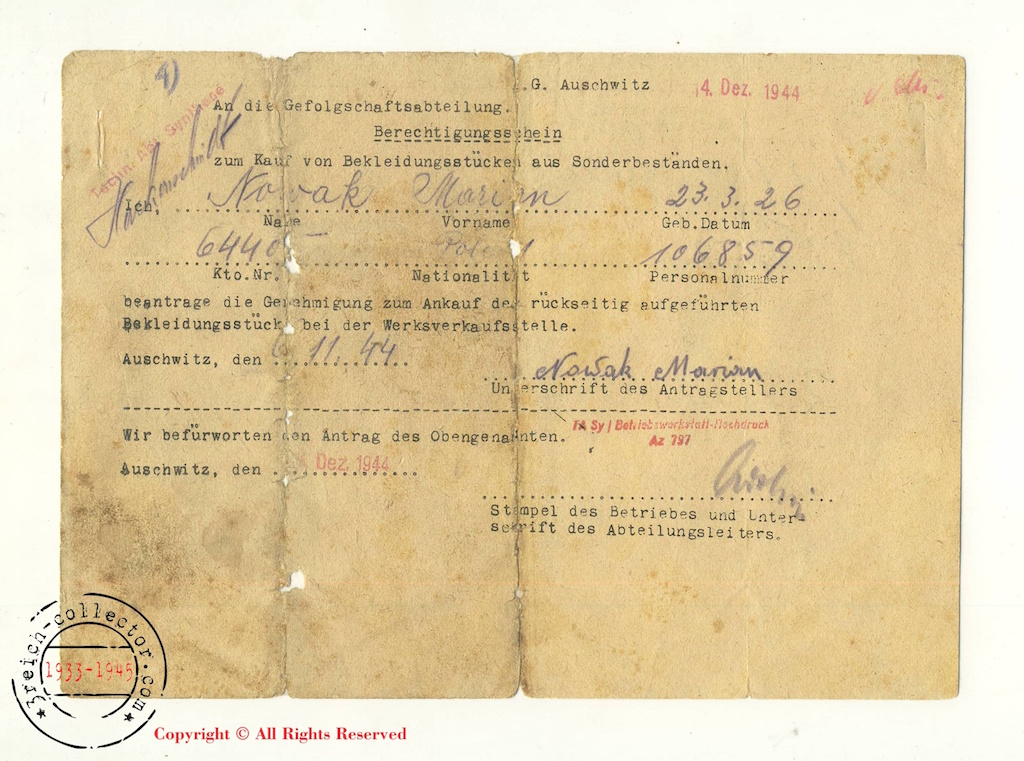 G. Auschwitz 14. Dez. 1944
An die Gefolgschaftsabteilung.
Berechtigungsschein
zum Kauf von Bekleidungsstücken aus Sonderbeständen.
Ich, Nowak Marian 23.3.26
Name Vorname Geb.Datum
106859
Kto.Nr. Nationalität Personalnummer
beantrage die Genehmigung zum Ankauf der rückseitig aufgeführten
Bekleidungsstück bei der Werksverkaufsstelle.
Auschwitz, den 11. 44
Nowak Marian
Unterschrift des Antragstellers
TA Sy / Betriebswerkstatt-Hochdruck
Az 797
Wir befürworten den Antrag des Obengenannten.
Auschwitz, den Dez. 1944
Stempel des Betriebes und Unter-
schrift des Abteilungsleiters.
3reich-collector.com
1933-1945
Copyright © All Rights Reserved